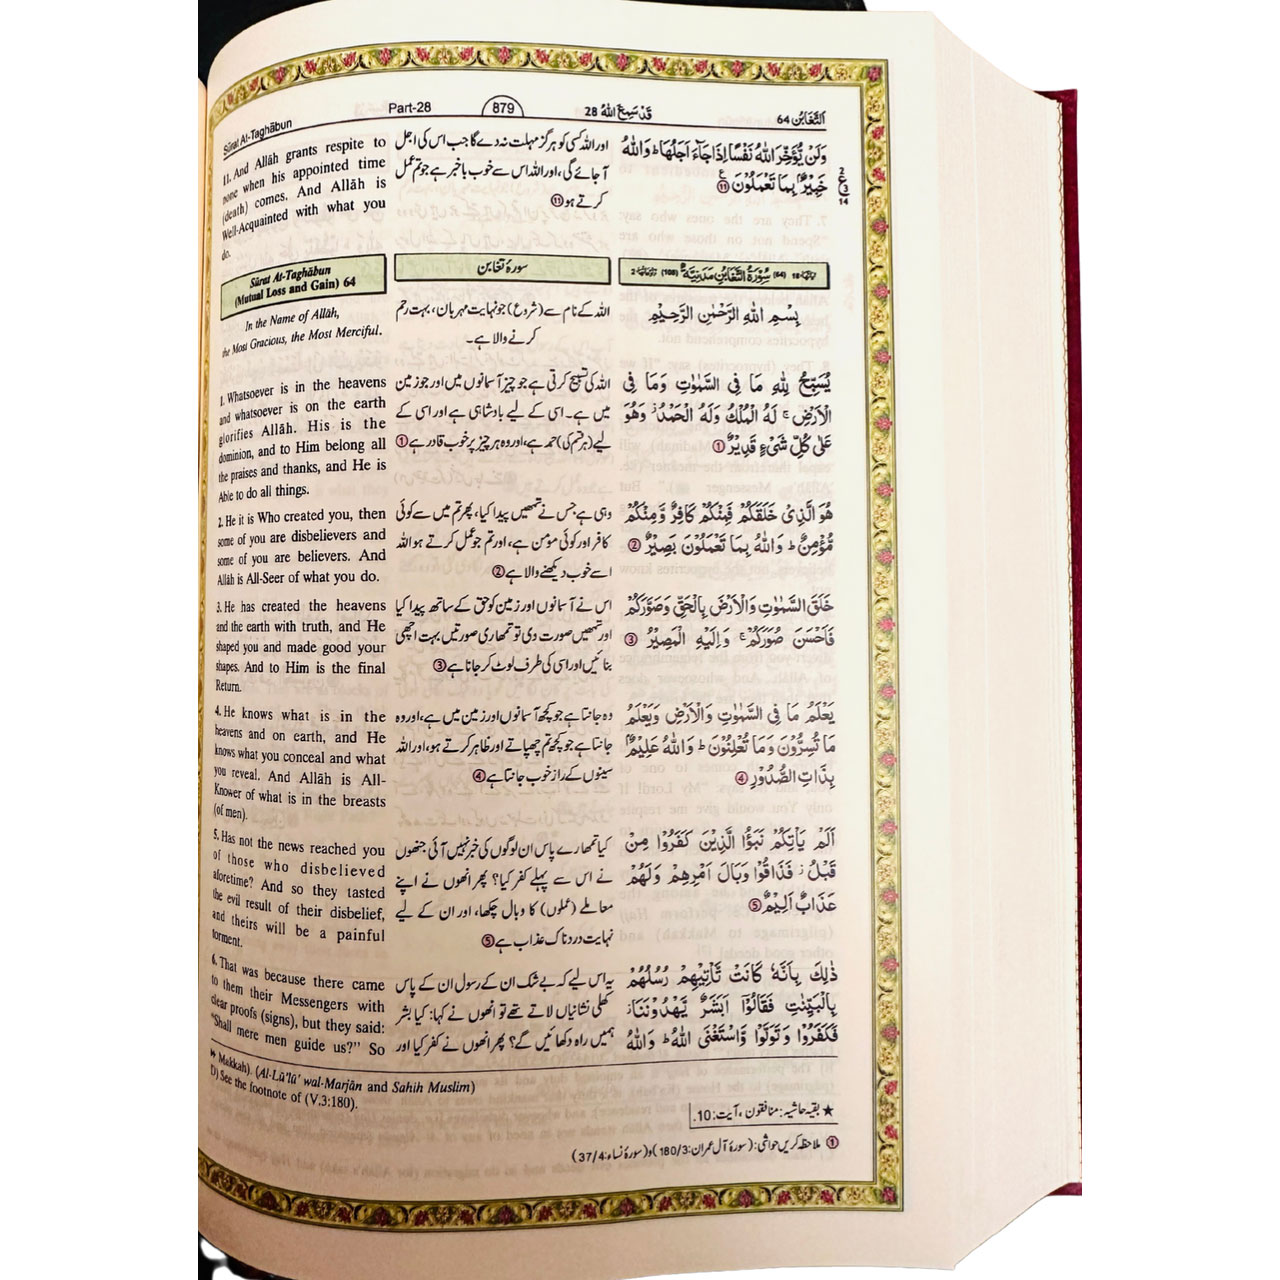 Sûrat At-Taghâbun
Part-28
879
قَدْ سَمِعَ اللّٰهُ 28
اَلتَّغَابُن 64
11. And Allâh grants respite to
none when his appointed time
(death) comes. And Allâh is
Well-Acquainted with what you
do.
Sûrat At-Taghâbun
(Mutual Loss and Gain) 64
In the Name of Allâh,
the Most Gracious, the Most Merciful.
1. Whatsoever is in the heavens
and whatsoever is on the earth
glorifies Allâh. His is the
dominion, and to Him belong all
the praises and thanks, and He is
Able to do all things.
2. He it is Who created you, then
some of you are disbelievers and
some of you are believers. And
Allâh is All-Seer of what you do.
3. He has created the heavens
and the earth with truth, and He
shaped you and made good your
shapes. And to Him is the final
Return.
4. He knows what is in the
heavens and on earth, and He
knows what you conceal and what
you reveal. And Allâh is All-
Knower of what is in the breasts
(of men).
5. Has not the news reached you
of those who disbelieved
aforetime? And so they tasted
the evil result of their disbelief,
and theirs will be a painful
torment.
6. That was because there came
to them their Messengers with
clear proofs (signs), but they said:
"Shall mere men guide us?" So
اور اللہ کسی کو ہرگز مہلت نہ دے گا جب اس کی اجل
آ جائے گی، اور اللہ اس سے خوب باخبر ہے جو تم عمل
کرتے ہو ⑪
سورۂ تغابن
اللہ کے نام سے (شروع) جو نہایت مہربان، بہت رحم
کرنے والا ہے۔
اللہ کی تسبیح کرتی ہے جو چیز آسمانوں میں اور جو زمین
میں ہے۔ اسی کے لیے بادشاہی ہے اور اسی کے
لیے (ہر قسم کی) حمد ہے، اور وہ ہر چیز پر خوب قادر ہے ①
وہی ہے جس نے تمھیں پیدا کیا، پھر تم میں سے کوئی
کافر اور کوئی مؤمن ہے، اور تم جو عمل کرتے ہو اللہ
اسے خوب دیکھنے والا ہے ②
اس نے آسمانوں اور زمین کو حق کے ساتھ پیدا کیا
اور تمھیں صورت دی تو تمھاری صورتیں بہت اچھی
بنائیں اور اسی کی طرف لوٹ کر جانا ہے ③
وہ جانتا ہے جو کچھ آسمانوں اور زمین میں ہے، اور وہ
جانتا ہے جو کچھ تم چھپاتے اور ظاہر کرتے ہو، اور اللہ
سینوں کے راز خوب جانتا ہے ④
کیا تمھارے پاس ان لوگوں کی خبر نہیں آئی جنھوں
نے اس سے پہلے کفر کیا؟ پھر انھوں نے اپنے
معاملے (عملوں) کا وبال چکھا، اور ان کے لیے
نہایت دردناک عذاب ہے ⑤
یہ اس لیے کہ بے شک ان کے رسول ان کے پاس
کھلی نشانیاں لاتے تھے تو انھوں نے کہا: کیا بشر
ہمیں راہ دکھائیں گے؟ پھر انھوں نے کفر کیا اور
وَلَنْ يُّؤَخِّرَ اللّٰهُ نَفْسًا اِذَا جَآءَ اَجَلُهَا ؕ وَاللّٰهُ
خَبِيْرٌۢ بِمَا تَعْمَلُوْنَ ⑪
2
ع
3
14
اٰیاتها 18 (64) سُوْرَةُ التَّغَابُنِ مَدَنِيَّةٌ (108) رکوعاتها 2
بِسْمِ اللّٰهِ الرَّحْمٰنِ الرَّحِيْمِ
يُسَبِّحُ لِلّٰهِ مَا فِي السَّمٰوٰتِ وَمَا فِي
الْاَرْضِ ۚ لَهُ الْمُلْكُ وَلَهُ الْحَمْدُ ؗ وَهُوَ
عَلٰى كُلِّ شَيْءٍ قَدِيْرٌ ①
هُوَ الَّذِيْ خَلَقَكُمْ فَمِنْكُمْ كَافِرٌ وَّمِنْكُمْ
مُّؤْمِنٌ ؕ وَاللّٰهُ بِمَا تَعْمَلُوْنَ بَصِيْرٌ ②
خَلَقَ السَّمٰوٰتِ وَالْاَرْضَ بِالْحَقِّ وَصَوَّرَكُمْ
فَاَحْسَنَ صُوَرَكُمْ ۚ وَاِلَيْهِ الْمَصِيْرُ ③
يَعْلَمُ مَا فِي السَّمٰوٰتِ وَالْاَرْضِ وَيَعْلَمُ
مَا تُسِرُّوْنَ وَمَا تُعْلِنُوْنَ ؕ وَاللّٰهُ عَلِيْمٌۢ
بِذَاتِ الصُّدُوْرِ ④
اَلَمْ يَاْتِكُمْ نَبَؤُا الَّذِيْنَ كَفَرُوْا مِنْ
قَبْلُ ؗ فَذَاقُوْا وَبَالَ اَمْرِهِمْ وَلَهُمْ
عَذَابٌ اَلِيْمٌ ⑤
ذٰلِكَ بِاَنَّهٗ كَانَتْ تَّاْتِيْهِمْ رُسُلُهُمْ
بِالْبَيِّنٰتِ فَقَالُوْٓا اَبَشَرٌ يَّهْدُوْنَنَا ؗ
فَكَفَرُوْا وَتَوَلَّوْا وَّاسْتَغْنَى اللّٰهُ ؕ وَاللّٰهُ
Makkah). (Al-Lû'lû' wal-Marjân and Sahih Muslim)
[1] See the footnote of (V.3:180).
★ بقیہ حاشیہ: منافقون، آیت: 10.
① ملاحظہ کریں حواشی: (سورۂ آل عمران: 180/3) و (سورۂ نساء: 37/4)